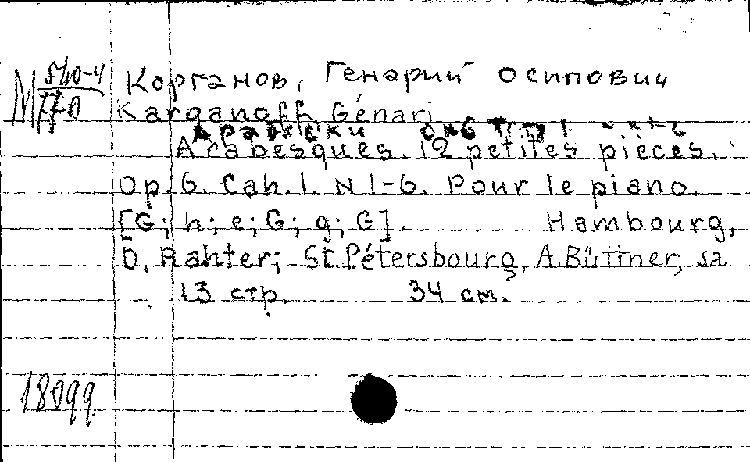 Корганов, Генарий Осипович
Karganoff, Génari
Арабески
Arabesques. 12 petites pièces.
Op. 6. Cah. 1. N 1-6. Pour le piano.
[G; h; e; G; g; G]. Hambourg,
D. Rahter; St. Pétersbourg, A. Büttner, sa
13 стр. 34 см.
18099